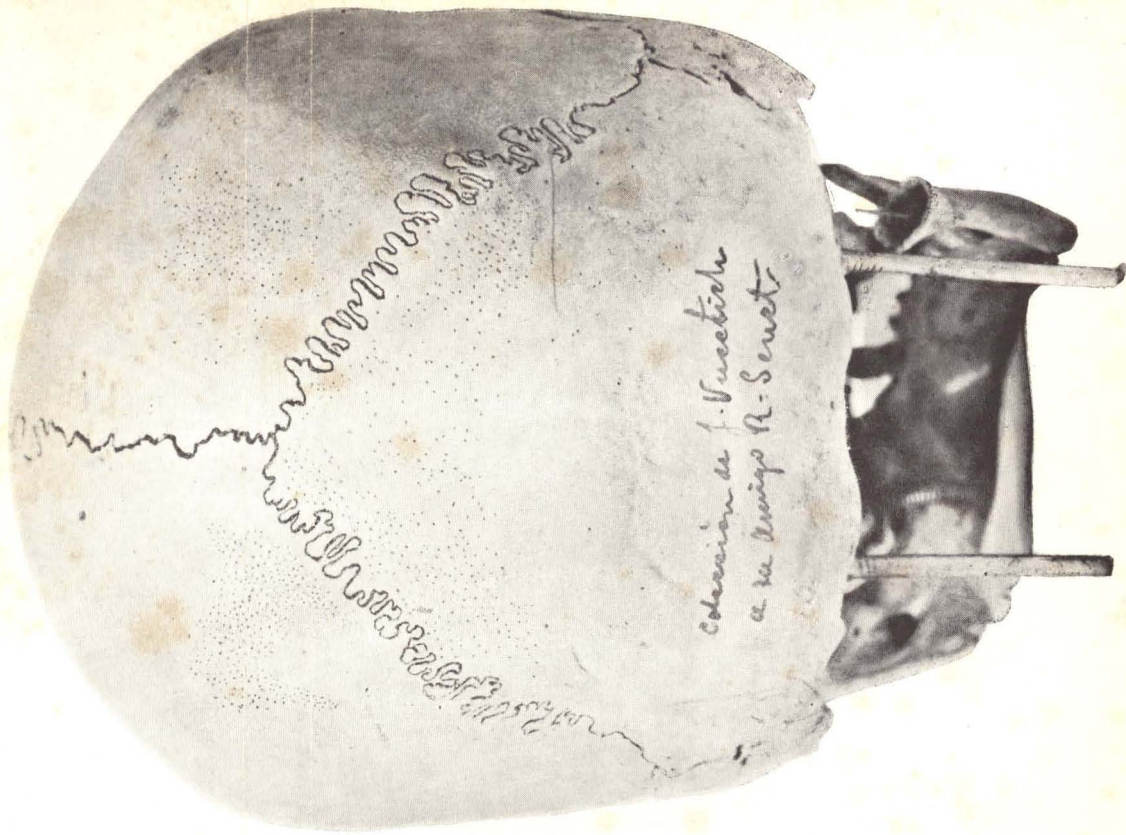 Colección de J. Vucetich
a su amigo R. Senet